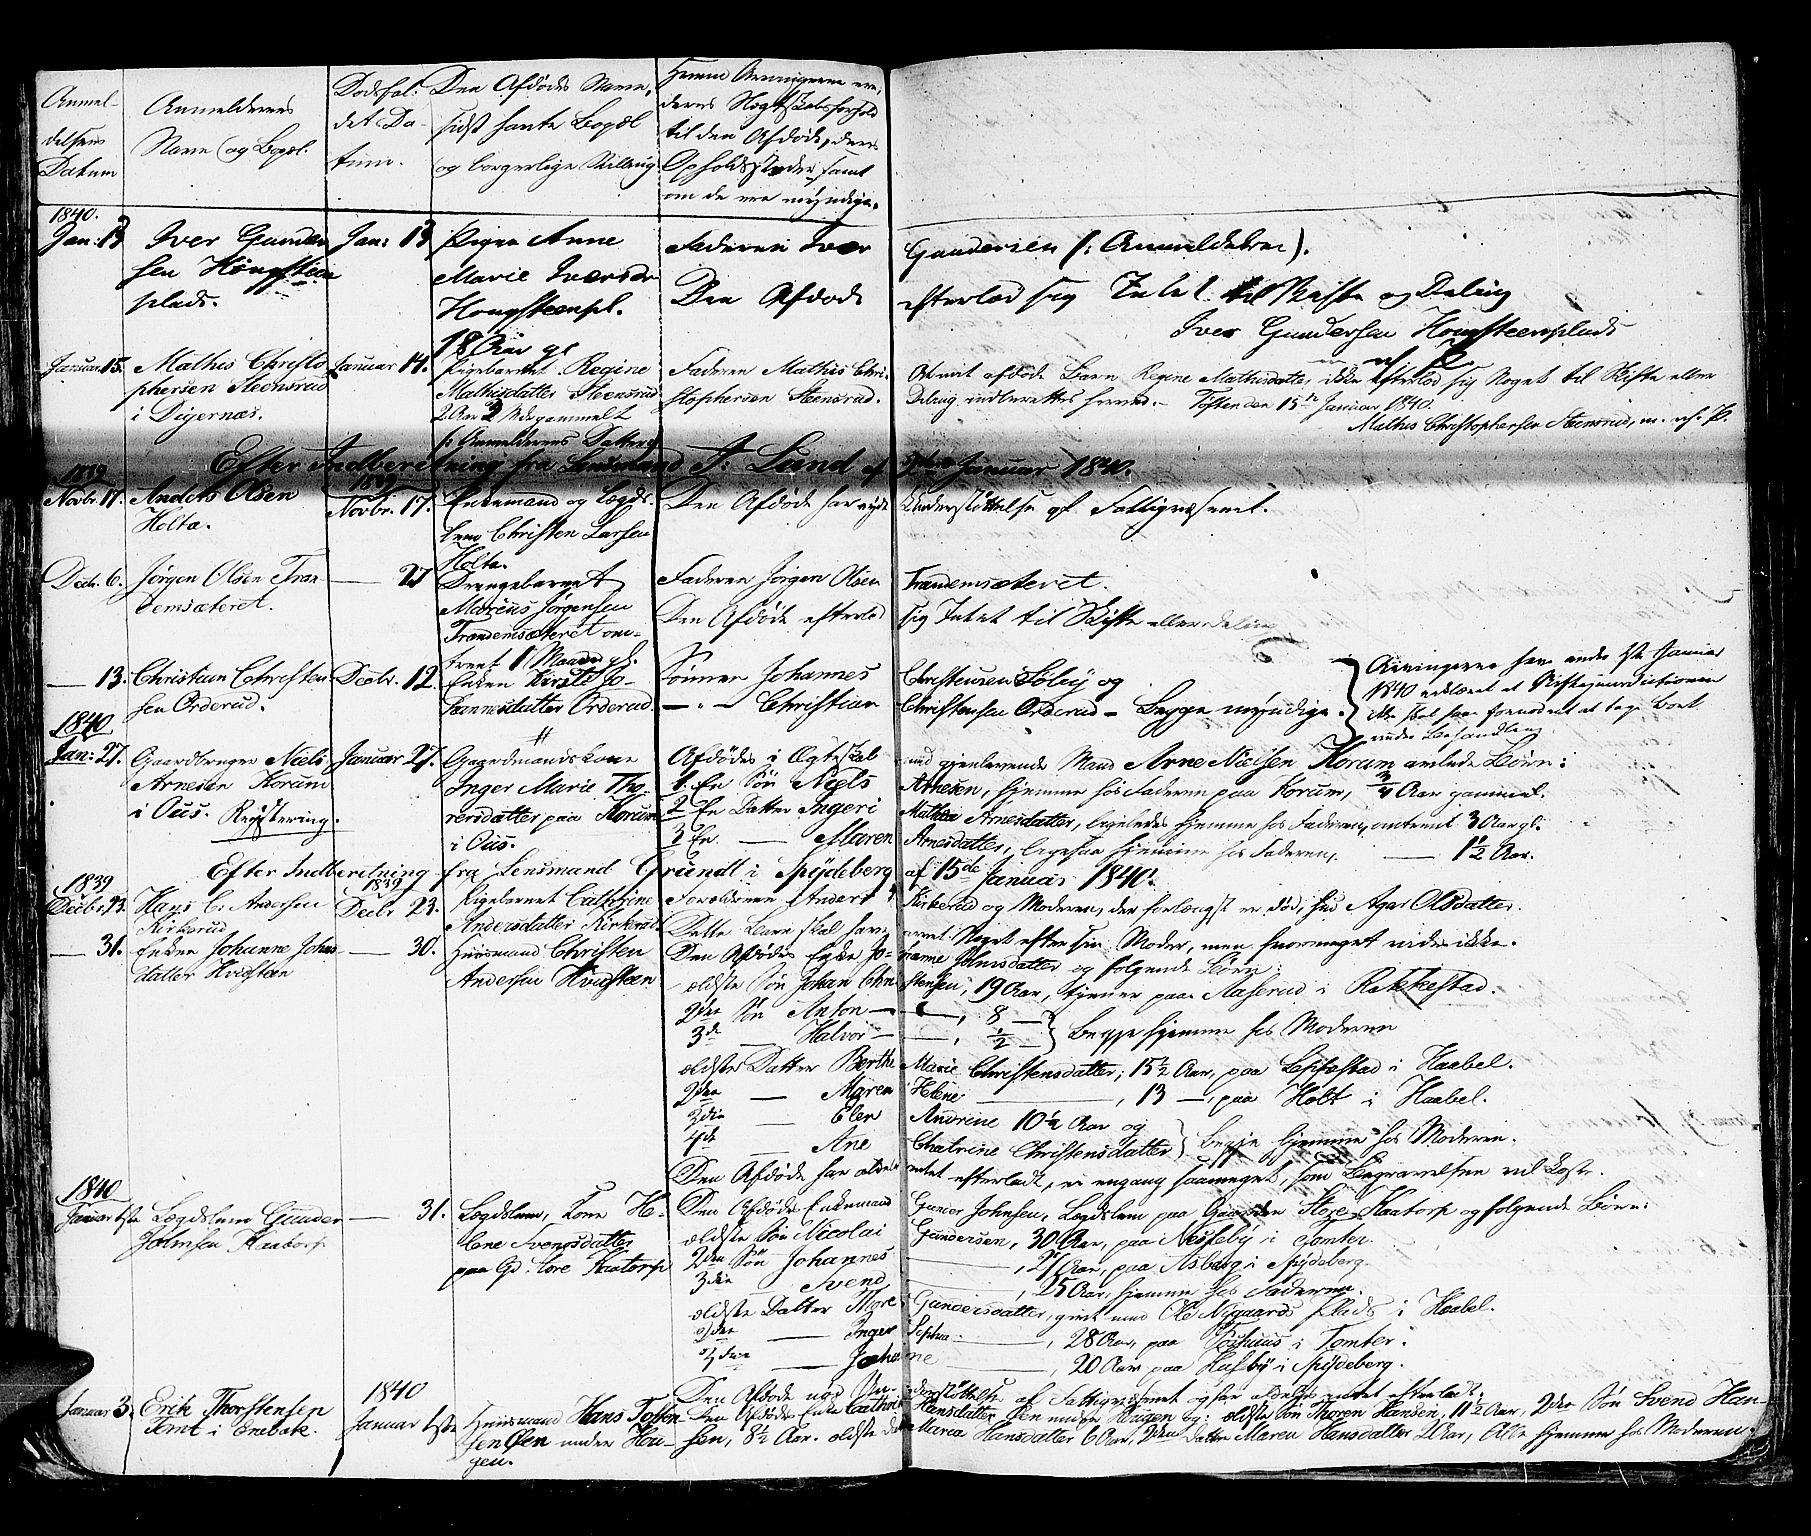 Anmel-
delsens
Datum
Anmelderens
Navn og Bopæl.
Dødsfal-
det Da-
tum.
Den Afdødes Navn,
sidst havte Bopæl
og borgerlige Stilling
Hvem Arvingerne ere,
deres Slægtskabsforhold
til den Afdøde, deres
Opholdssteder, samt
om de ere myndige.
1840.
Jan: 13
Iver Gunder
sen Hougsteen
plads.
Jan: 13
Pigen Anne
Marie Iversdr
Hougsteenpl.
18 Aar gl.
Faderen Iver Gundersen (: Anmelderen).
Den Afdøde efterlod sig Intet til Skifte og Deling
Iver Gundersen Hougsteenplads
m. ef. P.
Januar 15.
Mathis Christo
phersen Steensrud
i Digernæs.
Januar 14.
Pigebarnet Regine
Mathisdatter Steensrud
2 Aar gammelt
/: Anmelderens Datter
Faderen Mathis Chri-
stophersen Steensrud.
At mit afdøde Barn Regine Mathisdatter ikke efterlod sig Noget til Skifte eller
Deling indberettes herved. - Toften den 15de Januar 1840.
Mathis Christophersen Steensrud, m. ef. P.
Efter Indberetning fra Lensmand J: Lund af Januar 1840.
1839
Novbr. 17.
Anders Olsen
Holta.
1839
Novbr. 17.
Enkemand og Lægds-
lem Christen Larsen
Holta.
Den Afdøde har nydt Understøttelse af Fattigvæsenet.
Decbr. 6.
Jørgen Olsen Tran-
demsæteret.
— 27
Drengebarnet
Marius Jørgensen
Trandemsæteret om-
trent 1 Maaned gl.
Faderen Jørgen Olsen Trandemsæteret.
Den Afdøde efterlod sig Intet til Skifte eller Deling
— 13.
Christian Christen
sen Orderud.
Decbr. 12.
Enken Kirsti Jo-
hannesdatter Orderud
Sønnen Johannes Christensen Solvig og
— " — Christian Christensen Orderud - Begge myndige.
Arvingerne have under Januar
1840 erklæret at Skiftejurisdictionen
ikke skal have fornødent at tage Boet
under Behandling
1840
Jan: 27.
Gaardbruger Niels
Arnesen Korum
i Ous. Registering.
Januar 27.
Gaardmandskone
Inger Marie Tho-
resdatter paa Korum
i Ous.
Afdødes i Ægteskab med gjenlevende Mand Arne Nielsen Korum avlede Børn:
1. En Søn Niels Arnesen, hjemme hos Faderen paa Korum, 3/4 Aar gammel.
2 En Datter Ingeri Mathea Arnesdatter, ligeledes hjemme hos Faderen, omtrent 3 Aar gl.
3 En — Maren Arnesdatter, ligesaa hjemme hos Faderen, — 1 1/2 Aar.
Efter Indberetning fra Lensmand Grundt i Spydeberg af 15de Januar 1840.
1839
Decbr. 23.
Hans C. Andersen
Kirkerud
1839
Decbr 23.
Pigebarnet Cathrine
Andersdatter Kirkerud
Forældrene Anders Kirkerud og Moderen, der forlængst er død, hed Agar Olsdatter.
Dette Barn skal have arvet Noget efter sin Moder, men hvormeget vides ikke.
— 31.
Enken Johanne Johns
datter Hvidsteen
— 30.
Huusmand Christen
Andersen Hvidsteen
Den Afdødes Enke Jo- hanne Johnsdatter og følgende Børn:
ældste Søn Johan Chri stensen, 19 Aar, tjener paa Aaserud i Rakkestad.
2den Søn Anton — —, 8 —
3de — Halvor — —, 1/2 — } Begge hjemme hos Moderen
ældste Datter Berthe Marie Christensdatter, 15 1/2 Aar, paa Leptestad i Haabel.
2den — Maren Helene —, 13 —, paa Holt i Haabel.
3die — Elen Andrine 10 1/2 Aar og
4de — Ane Chatrine Christensdatter } begge hjemme hos Moderen.
Den Afdøde har aldeles intet efterladt, ei engang saameget, som Begravelsen vil koste.
1840
Januar 1ste
Lægdslem Gunder
Johnsen Kaatorp
— 31.
Lægdslem, Kone He-
lene Svendsdatter
paa Gd. Store Kaatorp
Den Afdødes Enkemand Gunder Johnsen, Lægdslem paa Gaarden Store Kaatorp og følgende Børn:
ældste Søn Nicolai Gundersen, 30 Aar, paa Næsseby i Tomter.
2den Søn Johannes —, 27 Aar, paa Asberg i Spydeberg.
3die — Svend —, 25 Aar, hjemme hos Faderen.
ældste Datter More Gundersdatter, givt med Ole Nygaards Plads i Haabel.
2den — Inger Sophia —, 28 Aar, paa i Tomter.
3die — Johanne —, 20 Aar paa Husby i Spydeberg.
Den Afdøde nød Understøttelse af Fattigvæsenet og har aldeles intet efterladt.
Januar 3.
Erik Thorstensen
Tomt i Enebak.
1840
Januar 1ste
Huusmand Hans Tosten
sen Eien under Hau-
gen.
Den Afdødes Enke Cathrine Hansdatter Eien under Haugen og: ældste Søn Thoren Hansen, 11 1/2 Aar, 2den Søn Svend Han-
sen, 8 1/2 Aar. ældste Datter Maria Hansdatter 6 Aar, 2den Datter Maren Hansdatter 2 Aar, Alle hjemme hos Moderen.